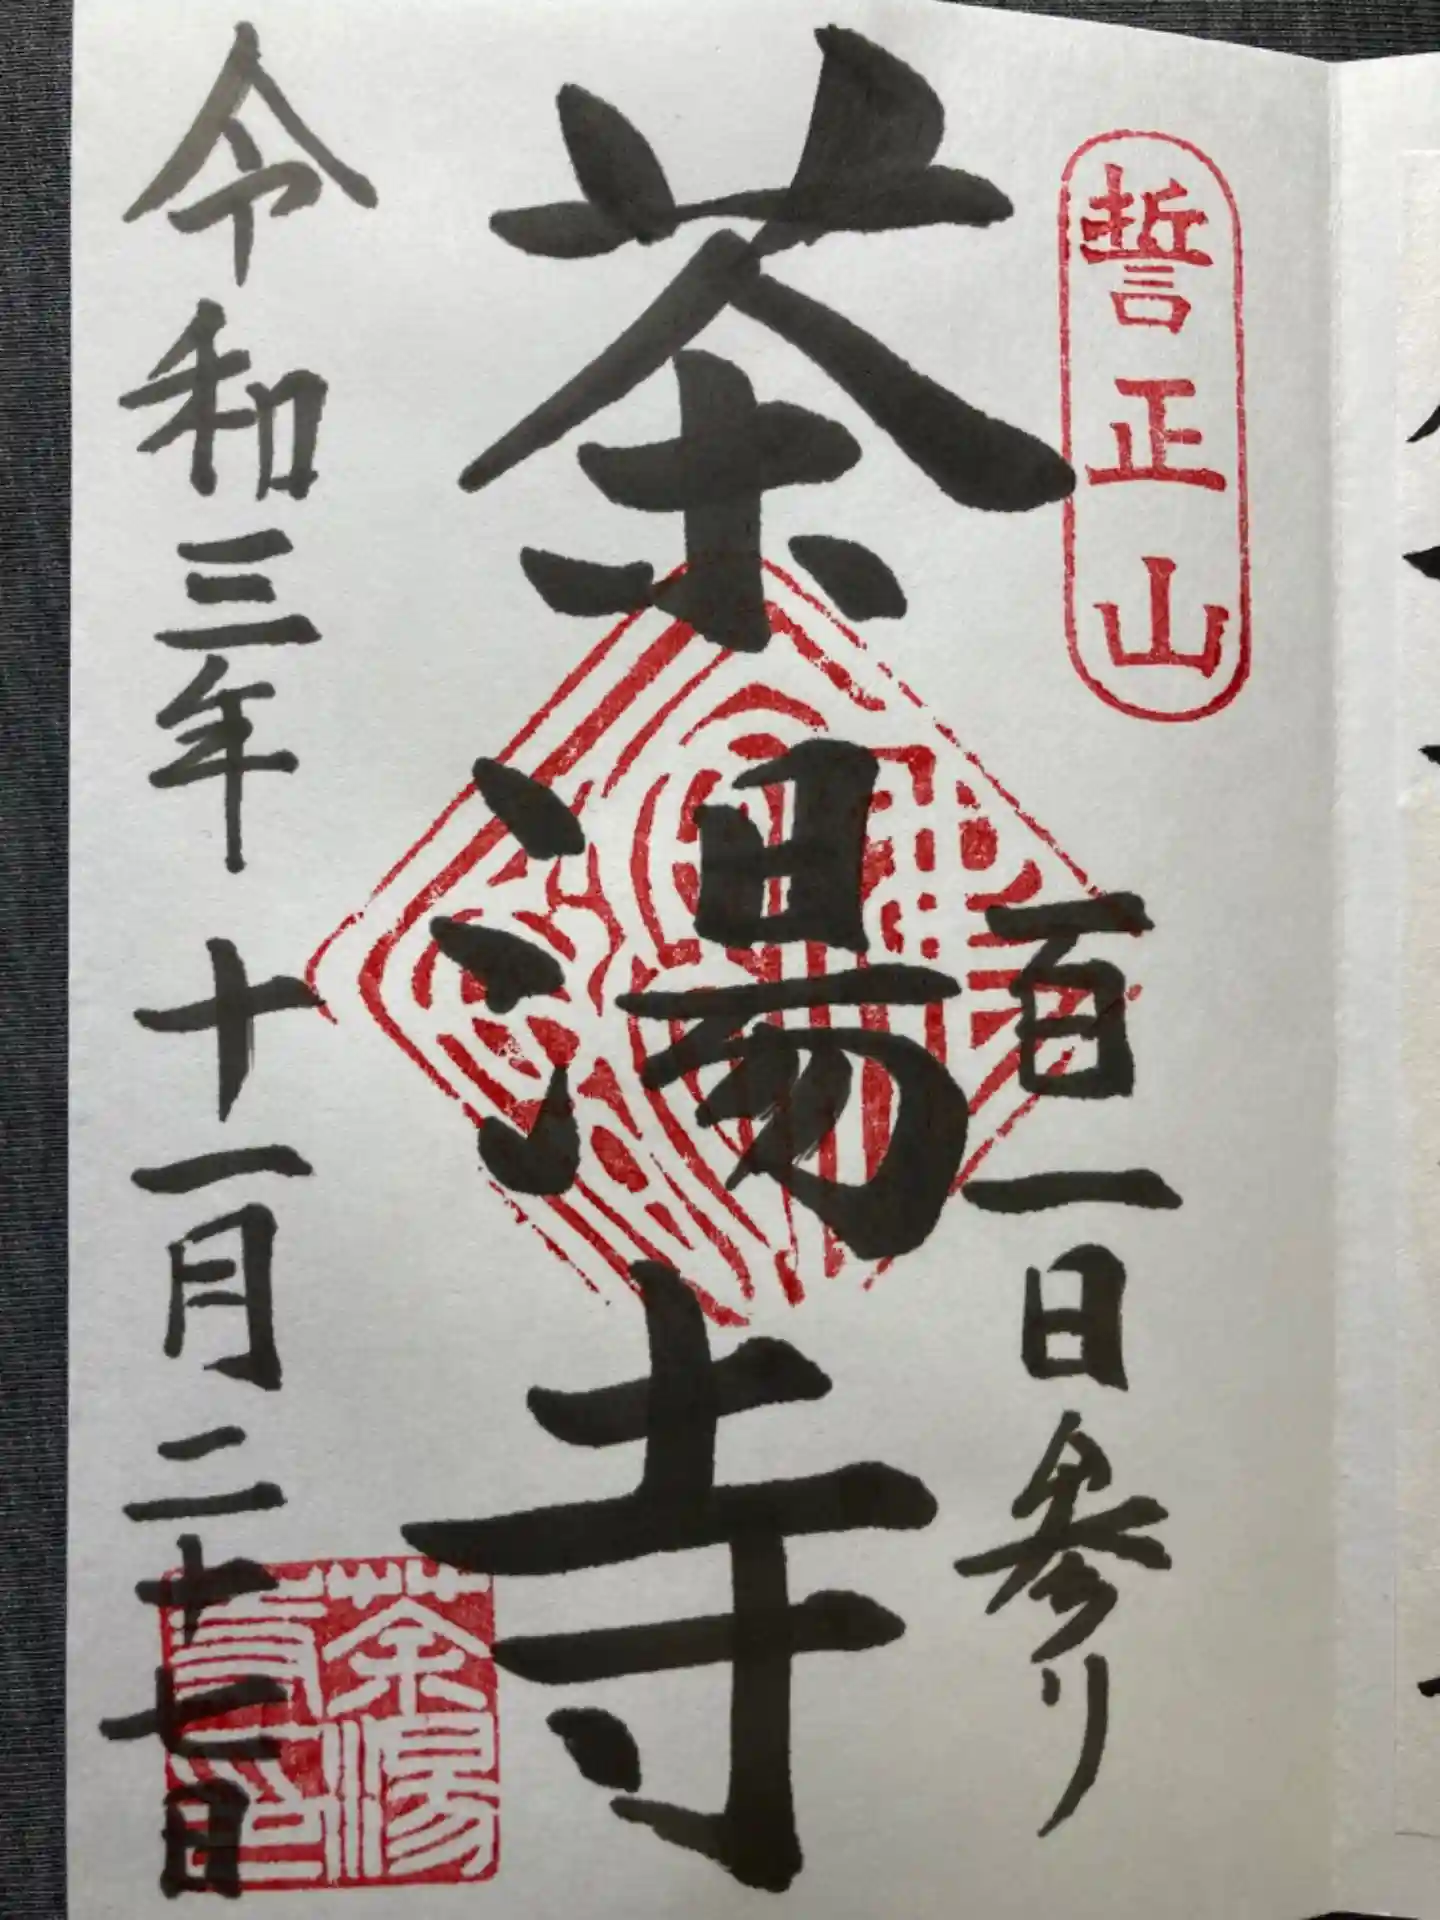 誓正山
百一日参り
茶湯寺
令和三年十一月二十七日
茶湯寺印